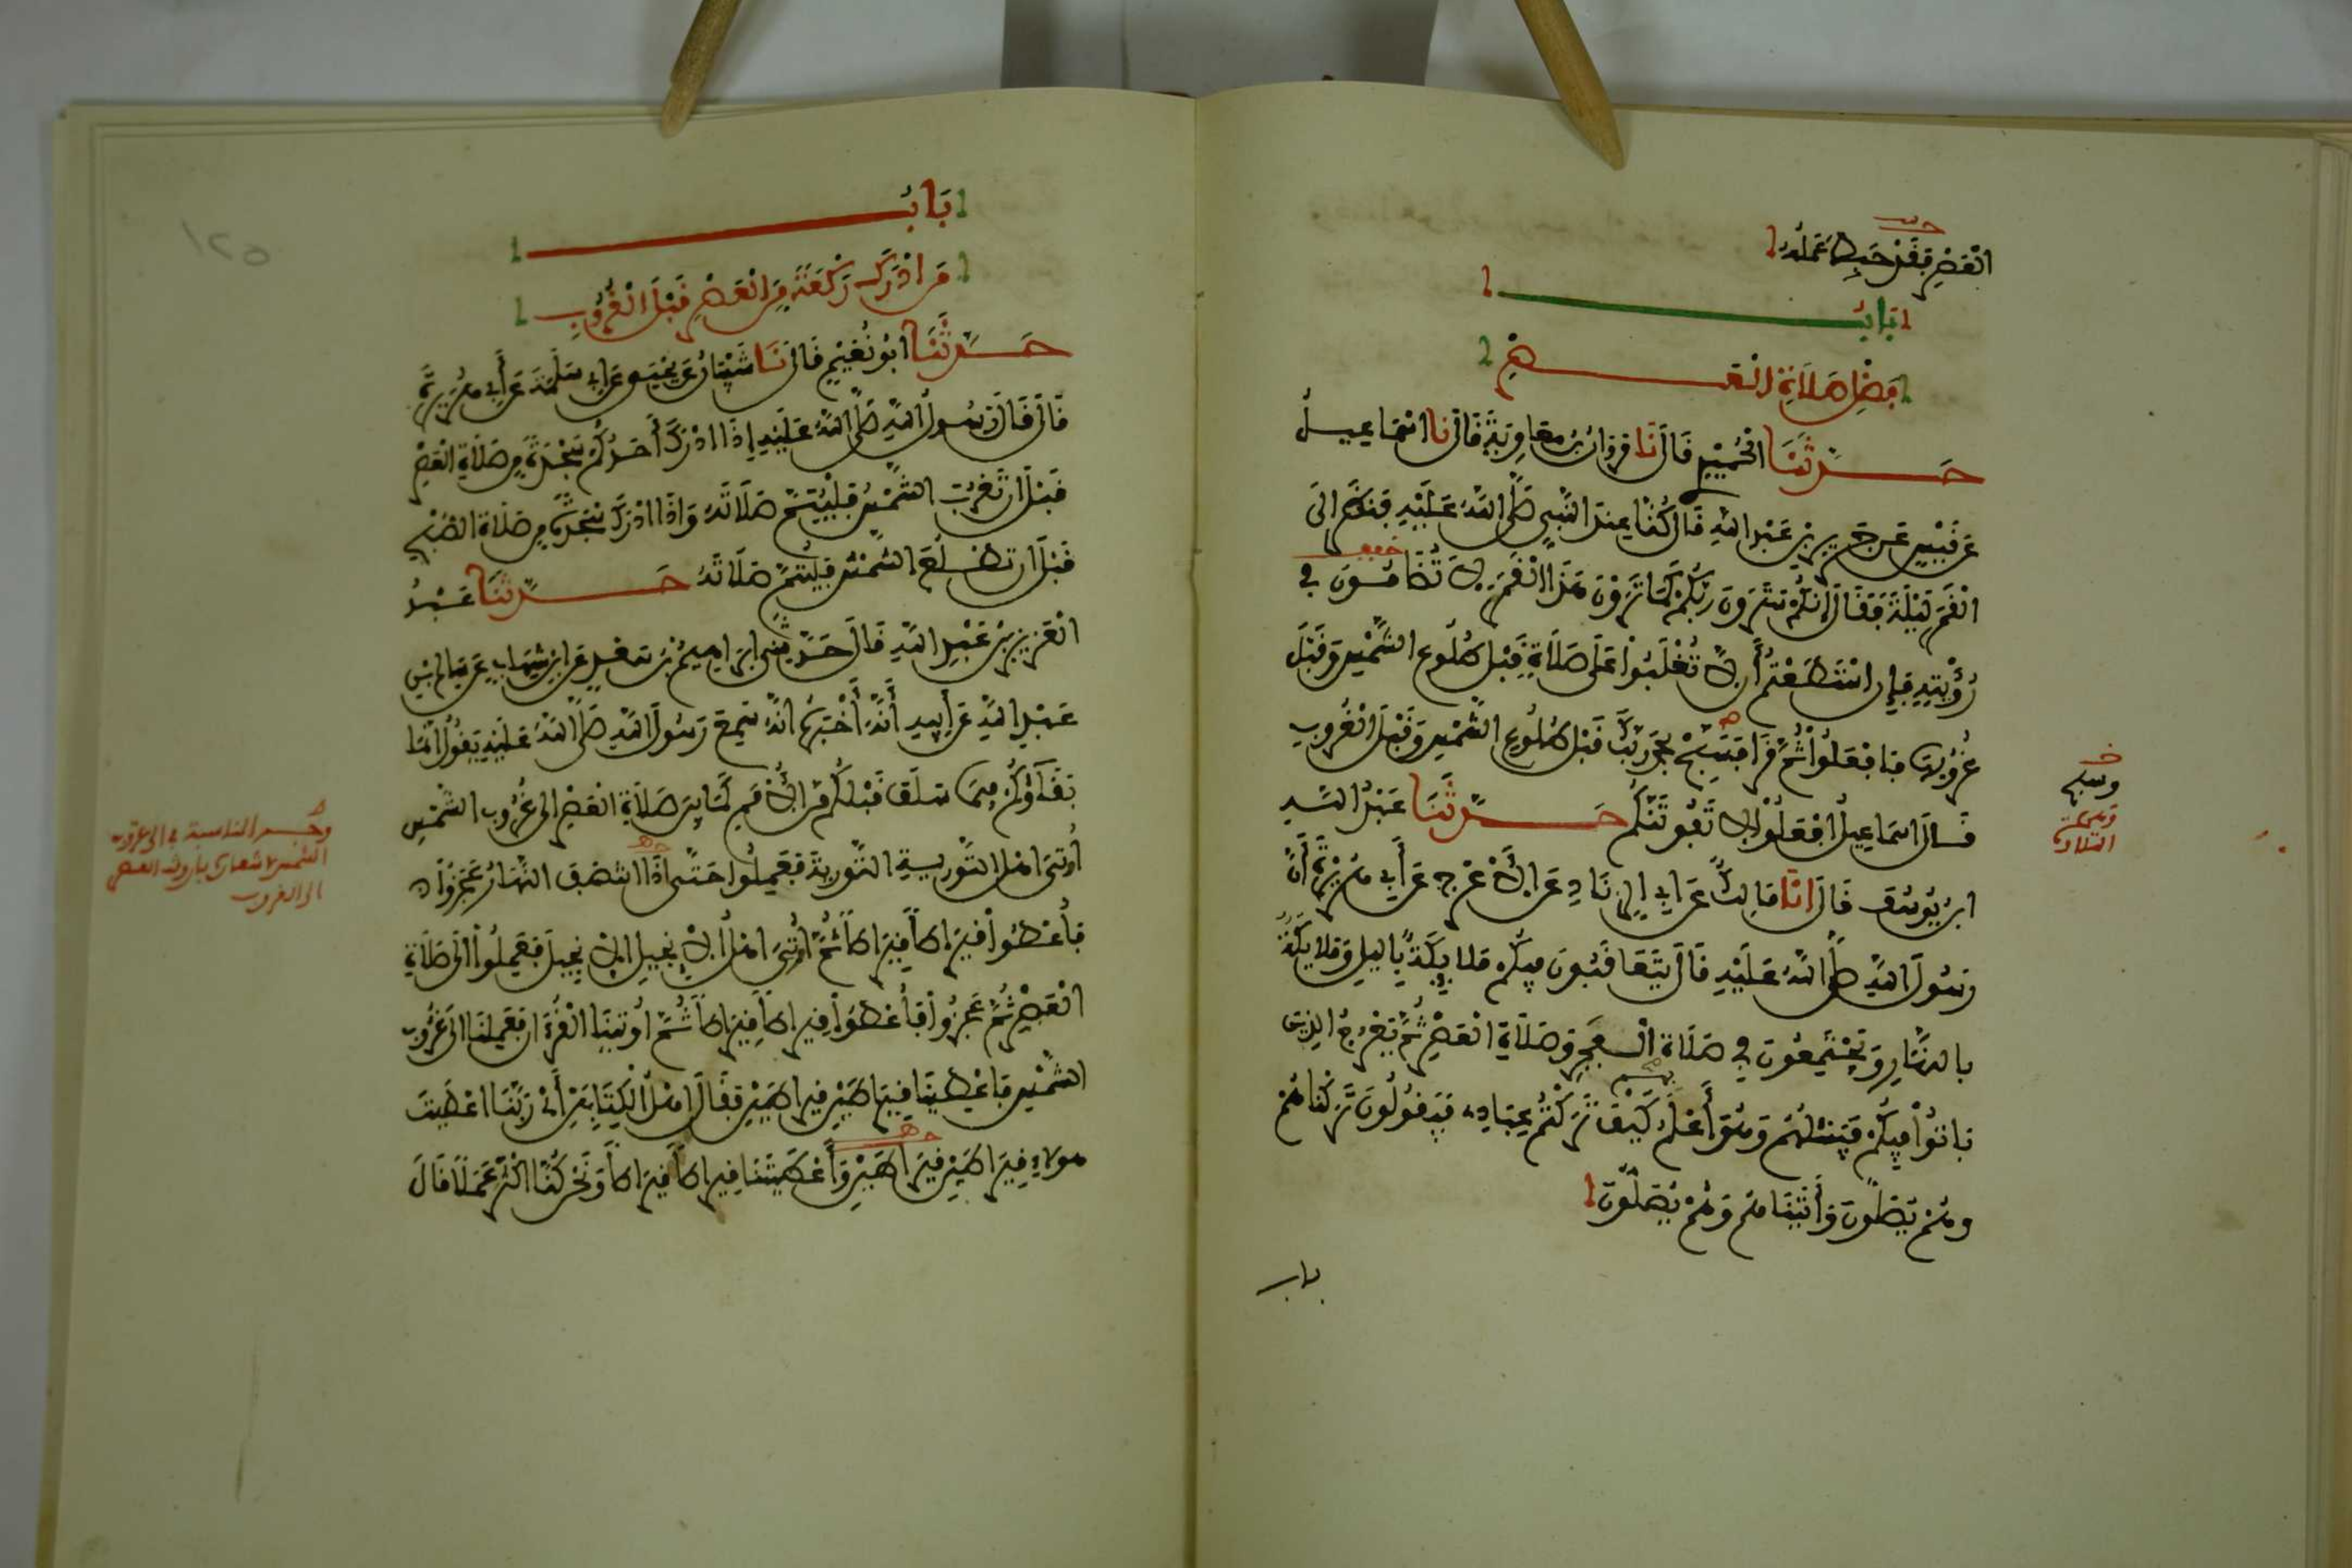 العصر فقد حبط عمله
باب
فضل صلاة العصر
حدثنا الحميدي قال نا مروان بن معاوية قال نا اسماعيل
عن قيس عن جرير بن عبد الله قال كنا عند النبي صلى الله عليه فنظر الى
القمر ليلة فقال إنكم سترون ربكم كما ترون هذا القمر لا تضامون في
رؤيته فإن استطعتم أن لا تغلبوا على صلاة قبل طلوع الشمس وقبل
غروبها فافعلوا ثم قرأ فسبح بحمد ربك قبل طلوع الشمس وقبل الغروب
قال اسماعيل افعلوا لا تفوتنكم حدثنا عبد الله
ابن يوسف قال انا مالك عن ابي الزناد عن الأعرج عن أبي هريرة أن
رسول الله صلى الله عليه قال يتعاقبون فيكم ملايكة بالليل وملايكة
بالنهار ويجتمعون في صلاة الفجر وصلاة العصر ثم يعرج الذين
باتوا فيكم فيسئلهم وهو أعلم كيف تركتم عبادي فيقولون تركناهم
وهم يصلون وأتيناهم وهم يصلون
باب
وسبح
التلاوة
١٢٥
باب
من ادرك ركعة من العصر قبل الغروب
حدثنا ابو نعيم قال نا شيبان عن يحيى عن ابي سلمة عن أبي هريرة
قال قال رسول الله صلى الله عليه إذا ادرك أحدكم سجدة من صلاة العصر
قبل ان تغرب الشمس فليتم صلاته واذا ادرك سجدة من صلاة الصبح
قبل ان تطلع الشمس فليتم صلاته حدثنا عبد
العزيز بن عبد الله قال حدثني ابراهيم بن سعد عن ابن شهاب عن سالم بن
عبد الله عن أبيه أنه أخبره انه سمع رسول الله صلى الله عليه يقول انما
بقاؤكم فيما سلف قبلكم من الأمم كما بين صلاة العصر الى غروب الشمس
أوتي اهل التورية التورية فعملوا حتى اذا انتصف النهار عجزوا
فأعطوا قيراطا قيراطا ثم أوتي اهل الإنجيل الإنجيل فعملوا الى صلاة
العصر ثم عجزوا فأعطوا قيراطا قيراطا ثم اوتينا القرءان فعملنا الى غروب
الشمس فاعطينا قيراطين قيراطين فقال اهل الكتابين أي ربنا اعطيت
هولاء قيراطين قيراطين وأعطيتنا قيراطا قيراطا ونحن كنا اكثر عملا قال
الى الغروب